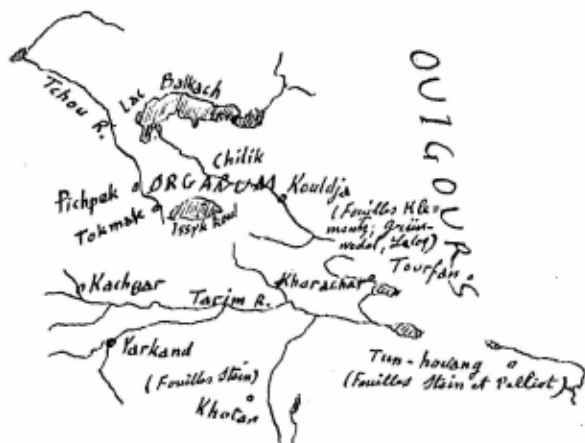 OUIGOURS
Tchou R.
Lac Balkach
Chilik
Pichpek
ORGARUM
Kouldja
Tokmak
Issyk Koul
(Fouilles Kle-
mentz, Grün-
wedel, Lecoq)
Tourfan
Kachgar
Kharachar
Tarim R.
Yarkand
(Fouilles Stein)
Khotan
Tun-houang
(Fouilles Stein et Pelliot)